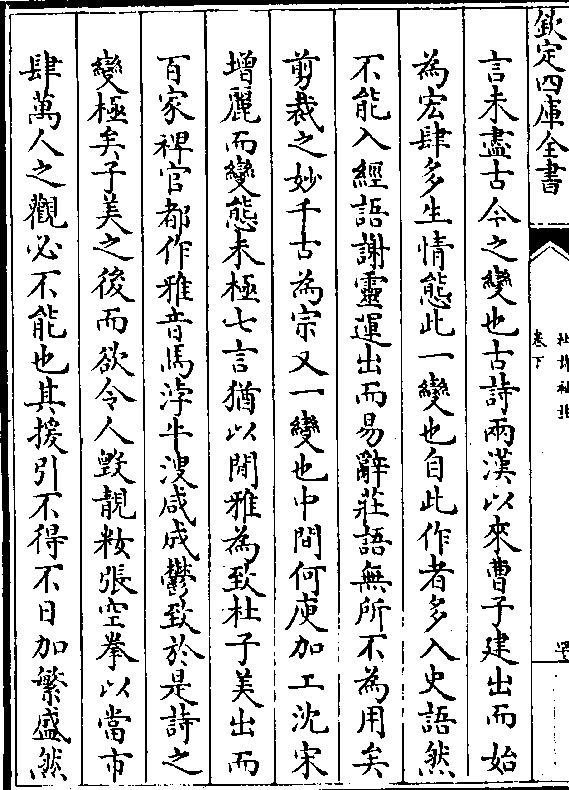 欽定四庫全書
言未盡古今之變也古詩兩漢以來曹子建出而始
為宏肆多生情態此一變也自此作者多入史語然
不能入經語謝靈運出而易辭莊語無所不為用矣
剪裁之妙千古為宗又一變也中間何庾加工沈宋
增麗而變態未極七言猶以閒雅為致杜子美出而
百家稗官都作雅音馬浡牛溲咸成鬱致於是詩之
變極矣子美之後而欲令人毀靚粧張空拳以當市
肆萬人之觀必不能也其援引不得不日加繁盛然
卷下